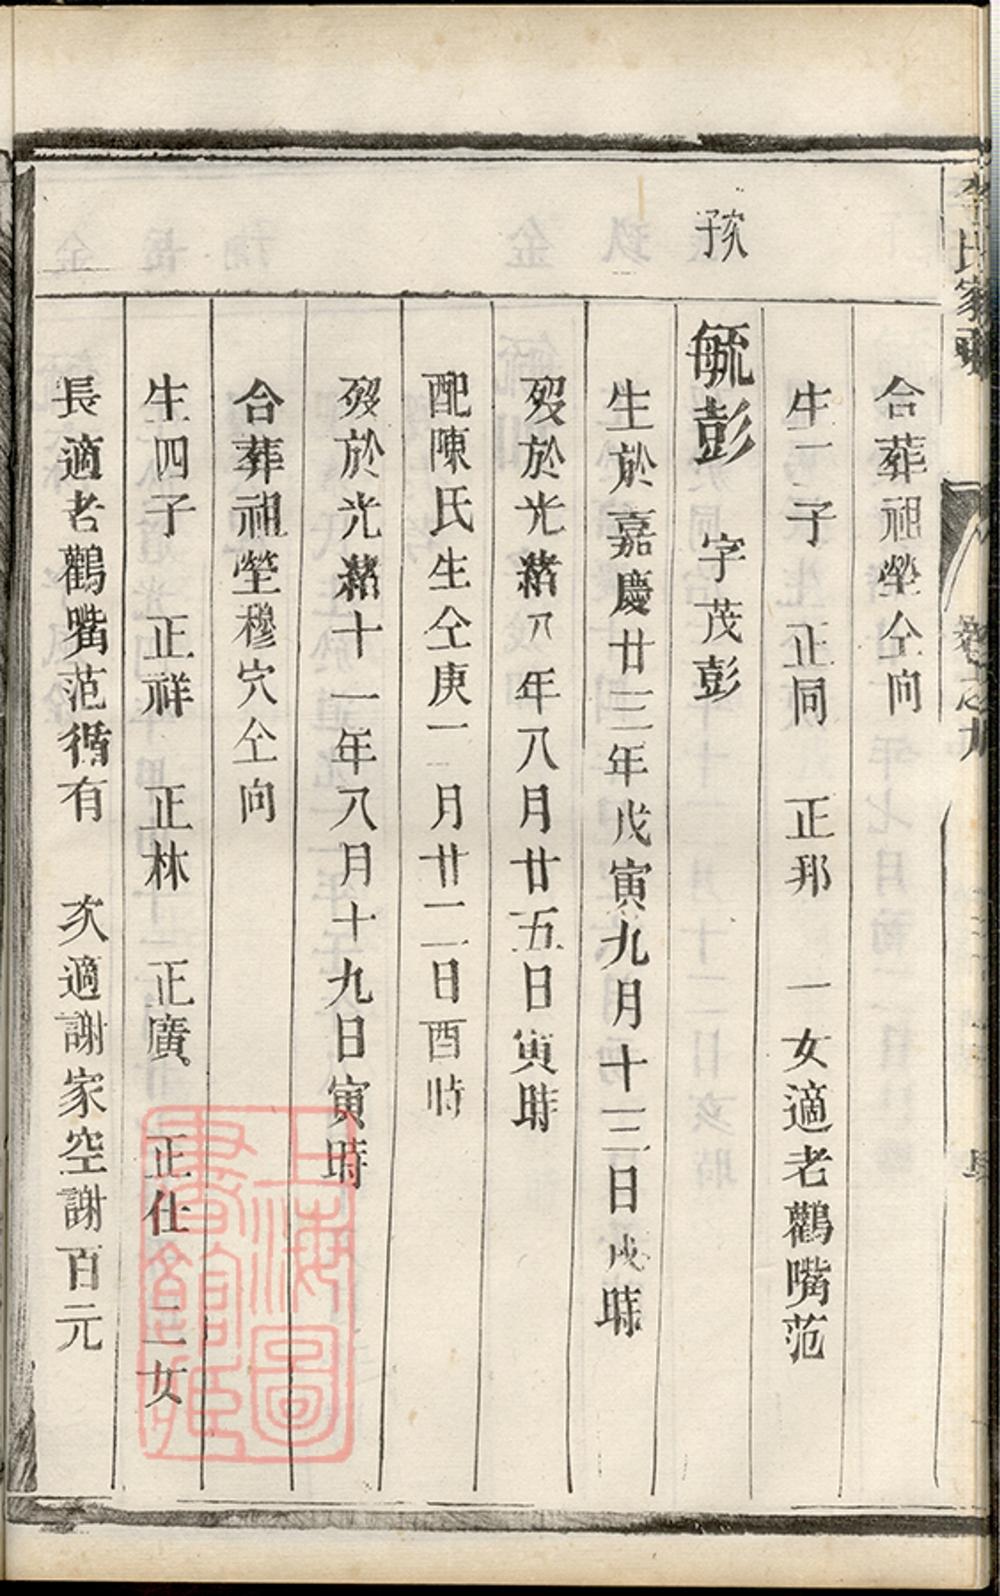 合葬祖塋仝向
生二子 正同 正邦 一女適老鸛嘴范
毓彭 字茂彭
生於嘉慶廿三年戊寅九月十三日戌時
歿於光緒八年八月廿五日寅時
配陳氏生仝庚 月廿二日酉時
歿於光緒十一年八月十九日寅時
合葬祖塋穆穴仝向
生四子 正祥 正林 正廣 正仕 二女
長適老鸛嘴范循有 次適謝家空謝百元
上海圖書館藏